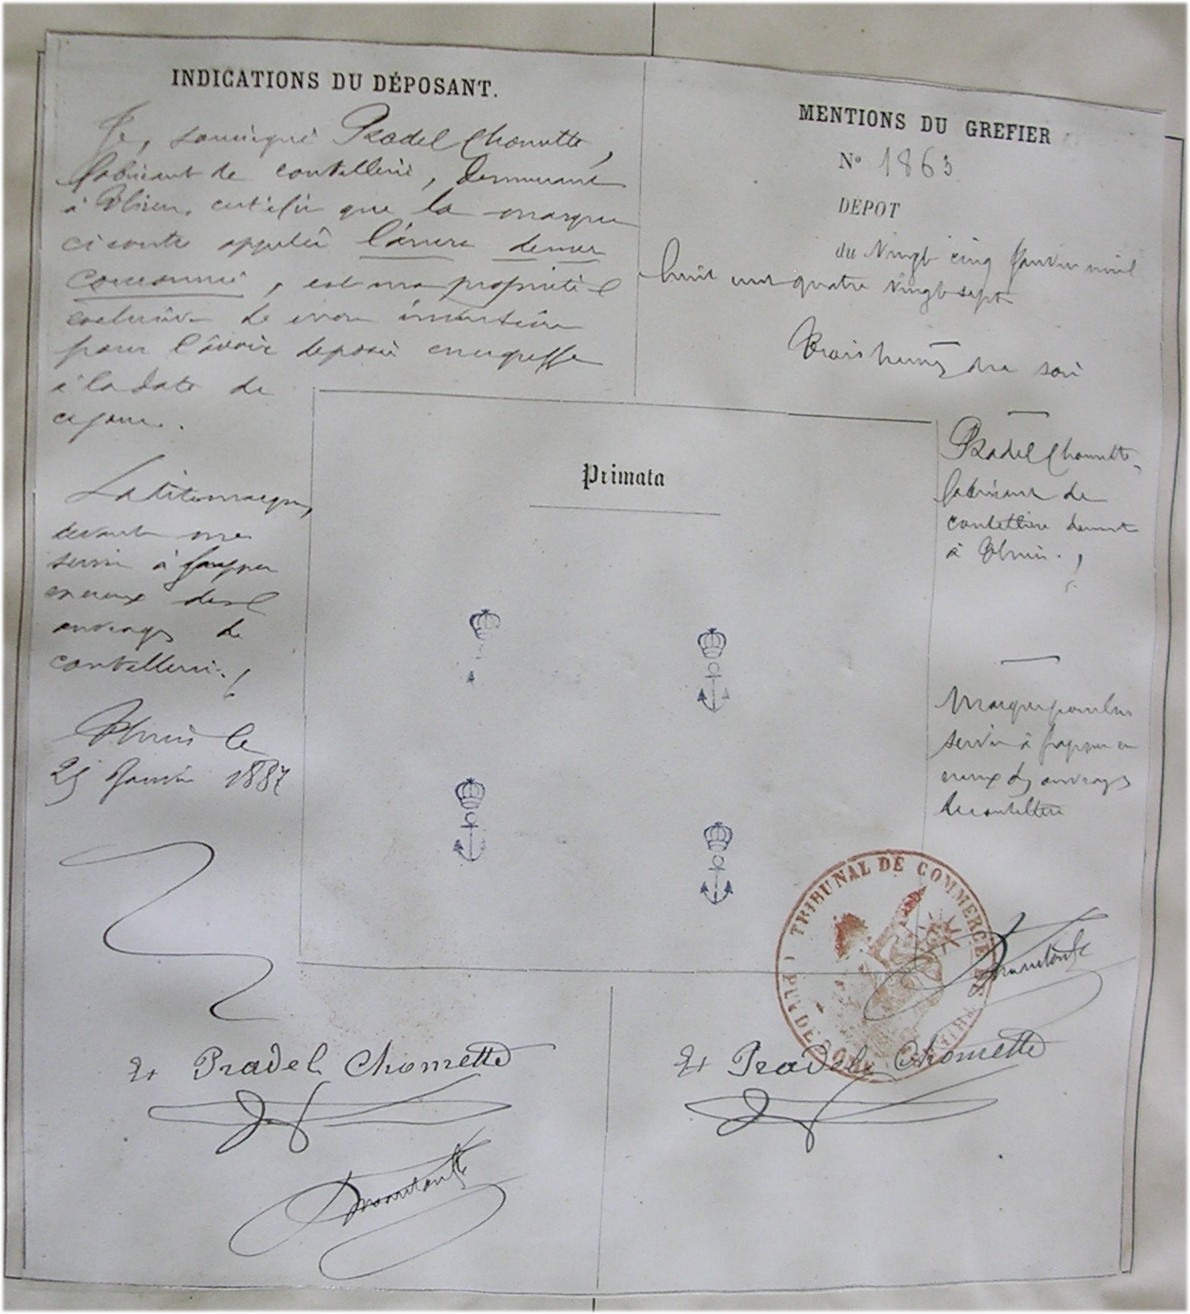 INDICATIONS DU DÉPOSANT.
Je, soussigné Pradel Chomette,
fabricant de coutellerie, demeurant
à Thiers, certifie que la marque
ci contre appelée l'ancre de mer
couronnée, est ma propriété
exclusive de mon invention
pour l'avoir déposée au greffe
à la date de
ce jour.
La dite marque,
devant me
servir à frapper
en creux des
ouvrages de
coutellerie.
Thiers le
25 Janvier 1887
MENTIONS DU GREFIER
No 1863
DEPOT
du Vingt cinq Janvier mil
huit cent quatre vingt sept
Trois heures du soir
Pradel Chomette,
fabricant de
coutellerie demt
à Thiers.
Marque pour lui
servir à frapper en
creux des ouvrages
de coutellerie
Primata
TRIBUNAL DE COMMERCE DE THIERS
PUY DE DOME
Pradel Chomette
Pradel Chomette